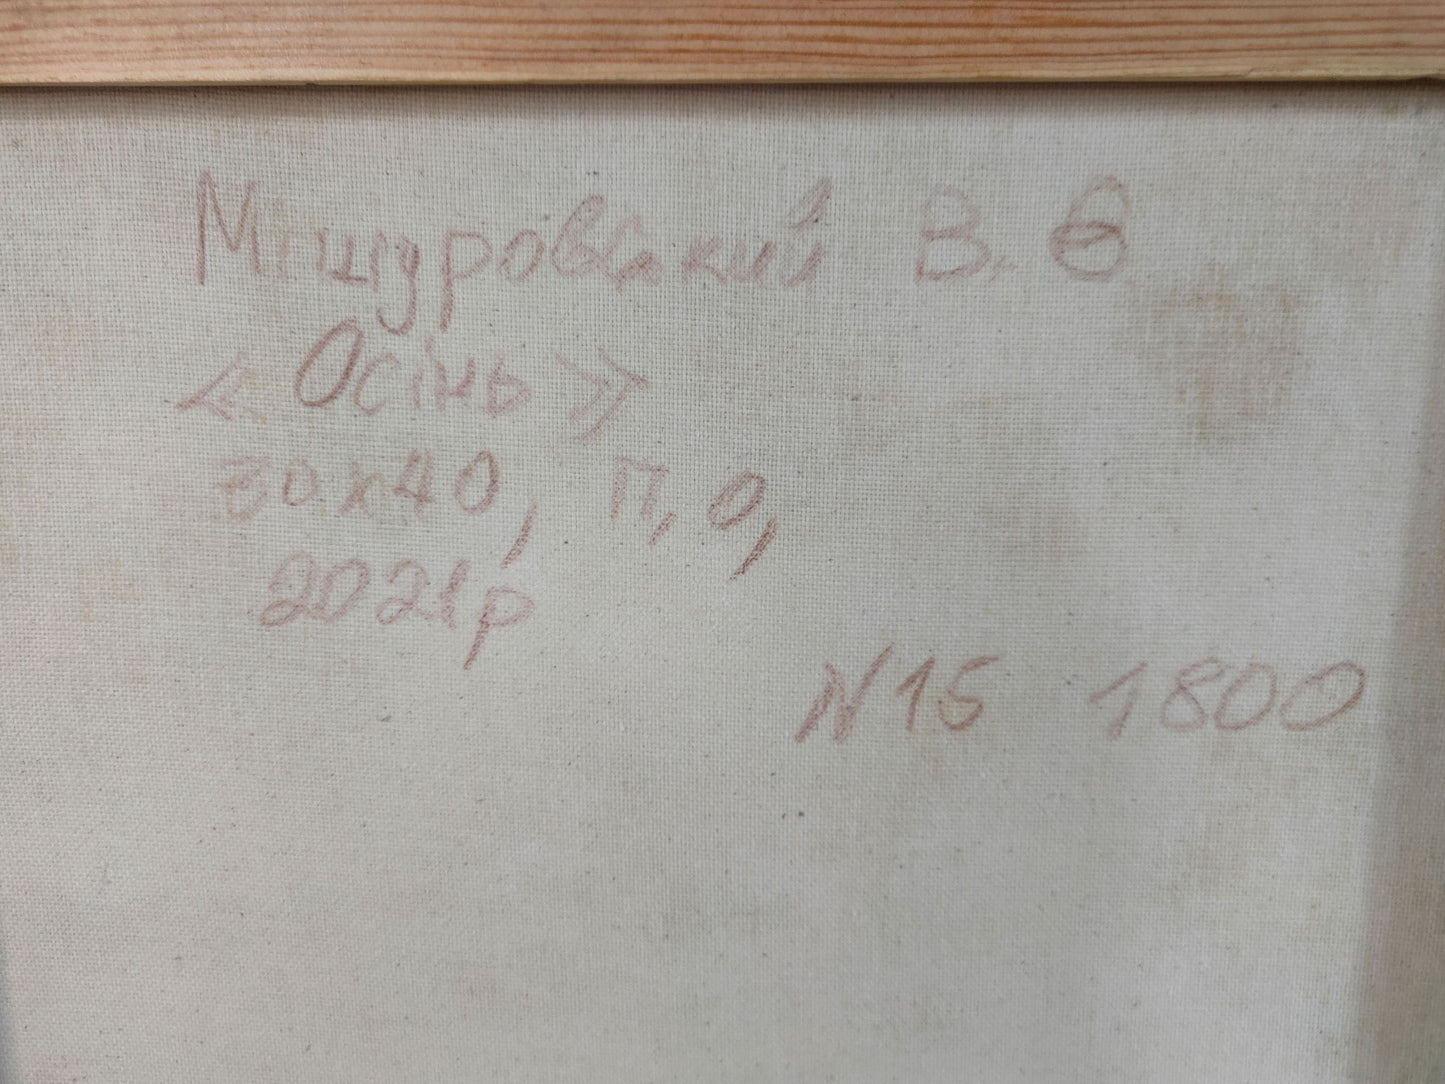 Міщуровський В. Ф
« Осінь »
30х40, П, О,
2021р
N15 1800